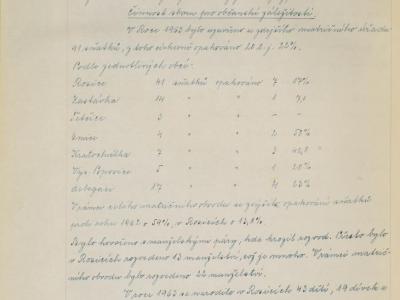 Činnost sboru pro občanské záležitosti.
V Roce 1962 bylo uzavřeno u zdejšího matričního úřadu
91 sňatků, z toho církevně opakováno 20 t.j. 22%.
Podle jednotlivých obcí:
Rosice 41 sňatků opakováno 7 17%
Zastávka 14 " " 1 7,1
Tetčice 3 " " – –
4 " " 2 50%
Kratochvilka 7 " " 3
Vys. Popovice 5 " " 1 20%
delegace 17 " " 4 23%
V rámci celého matričního obvodu se zvýšilo opakování sňatků
proti roku 1962 o 5%, v Rosicích o 13,8%
Bylo hovořeno s manželskými páry, kde hrozil rozvod. Přesto bylo
v Rosicích rozvedeno 13 manželství, což je mnoho. V rámci matrič-
ního obvodu bylo rozvedeno 22 manželství.
V roce 1963 se narodilo v Rosicích 43 dětí, 19 dívek a